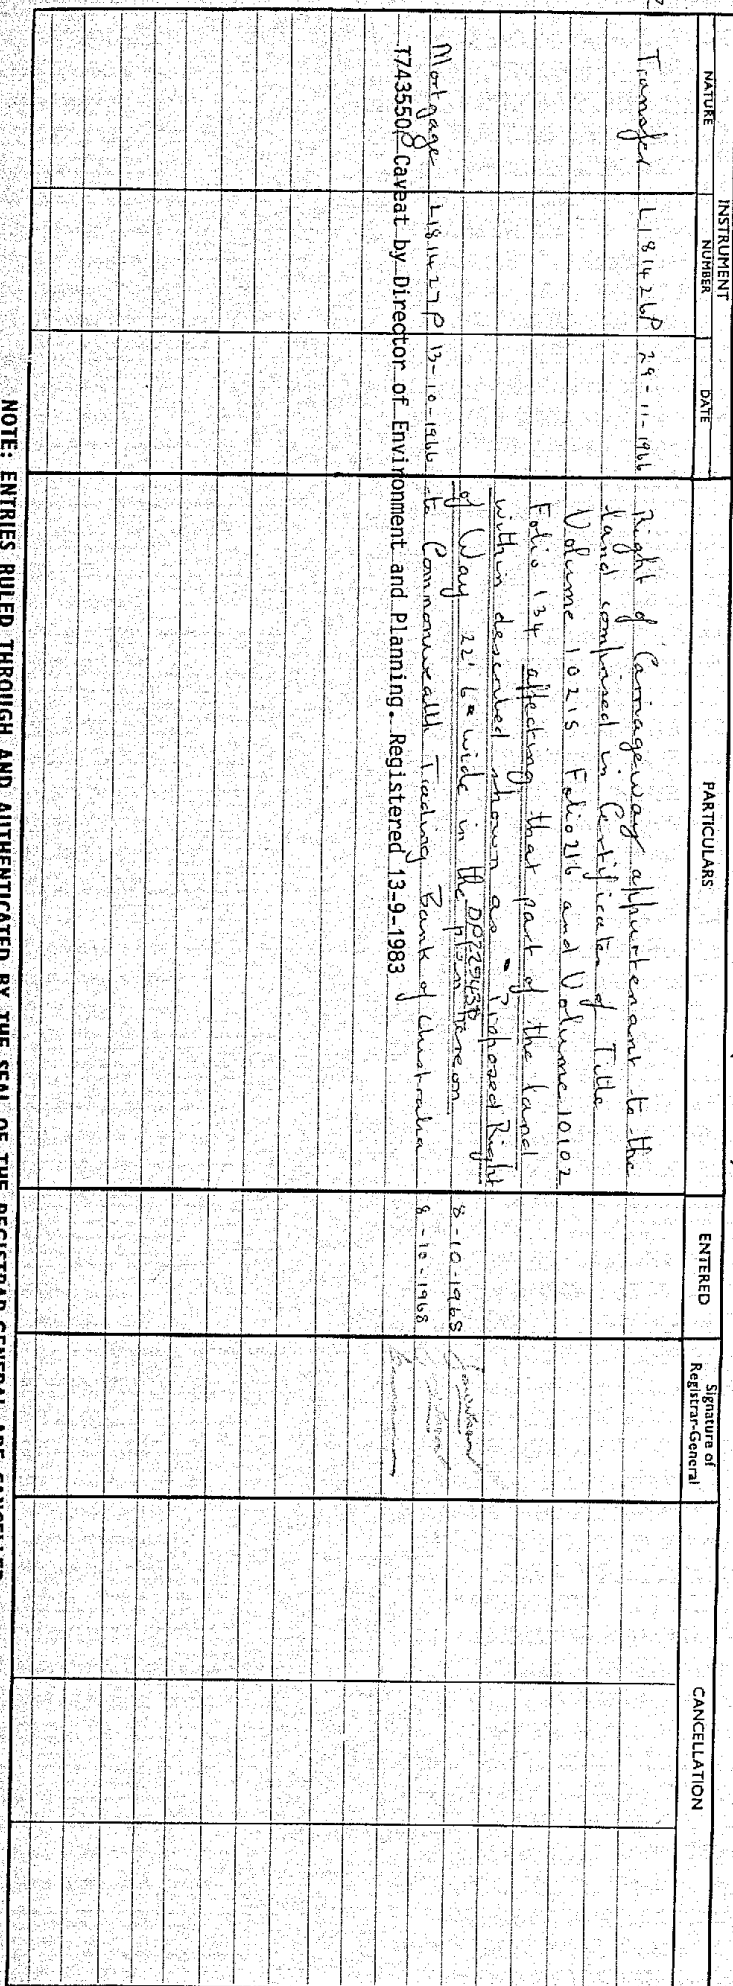 INSTRUMENT
NATURE NUMBER DATE PARTICULARS ENTERED Signature of Registrar-General CANCELLATION
Transfer L181426P 29-11-1966 Right of Carriageway appurtenant to the
land comprised in Certificates of Title
Volume 10215 Folio 216 and Volume 10102
Folio 134 affecting that part of the land
within described shown as "Proposed Right
of Way 22' 6" wide in the plan hereon 8-10-1968
DP229430
Mortgage L181427P 13-10-1966 to Commonwealth Trading Bank of Australia 8-10-1968
T743550P Caveat by Director of Environment and Planning. Registered 13-9-1983
NOTE: ENTRIES RULED THROUGH AND AUTHENTICATED BY THE SEAL OF THE REGISTRAR GENERAL ARE CANCELLED